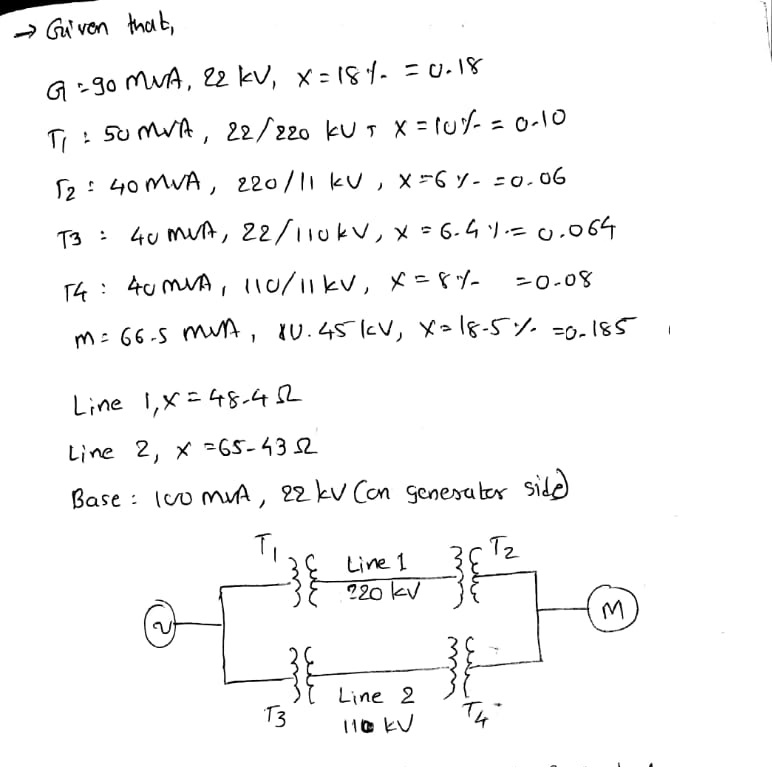 → Given that,
G = 90 MVA, 22 kV, X = 18 % = 0.18
T1 : 50 MVA, 22/220 kV, X = 10% = 0.10
T2 : 40 MVA, 220/11 kV, X = 6 % = 0.06
T3 : 40 MVA, 22/110 kV, X = 6.4 % = 0.064
T4 : 40 MVA, 110/11 kV, X = 8 % = 0.08
M = 66.5 MVA, 10.45 kV, X = 18.5 % = 0.185
Line 1, X = 48.4 Ω
Line 2, X = 65.43 Ω
Base : 100 MVA, 22 kV (on generator side)
T1 Line 1 T2
220 kV
M
T3 Line 2 T4
110 kV